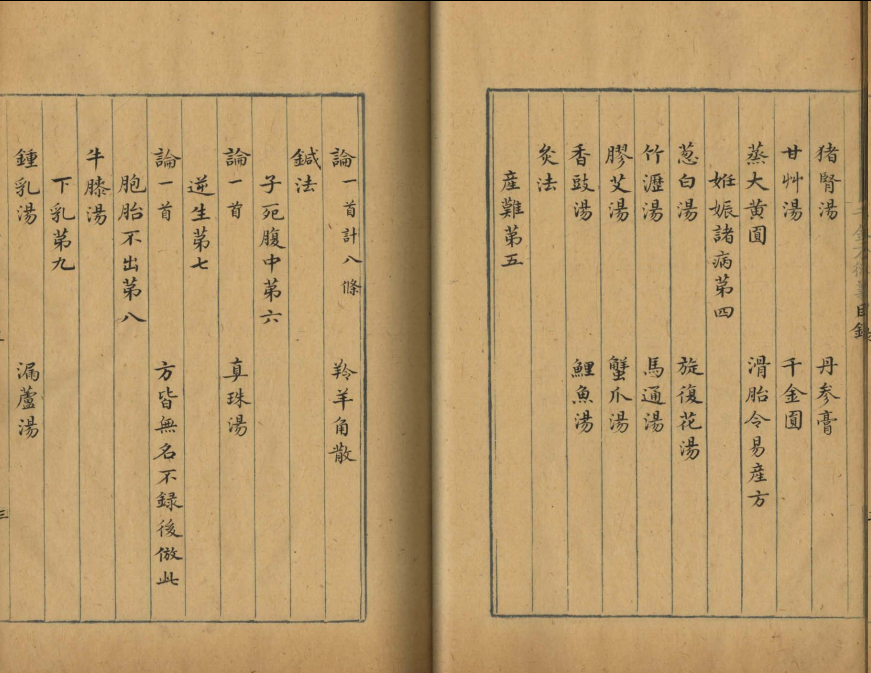 目録
猪腎湯　丹参膏
甘艸湯　千金圎
蒸大黄圎　滑胎令易産方
妊娠諸病第四
葱白湯　旋復花湯
竹瀝湯　馬通湯
膠艾湯　蟹爪湯
香豉湯　鯉魚湯
灸法
産難第五
論一首計八條　羚羊角散
鍼法
子死腹中第六
論一首　真珠湯
逆生第七
論一首　方皆無名不録後倣此
胞胎不出第八
牛膝湯
下乳第九
鍾乳湯　漏蘆湯